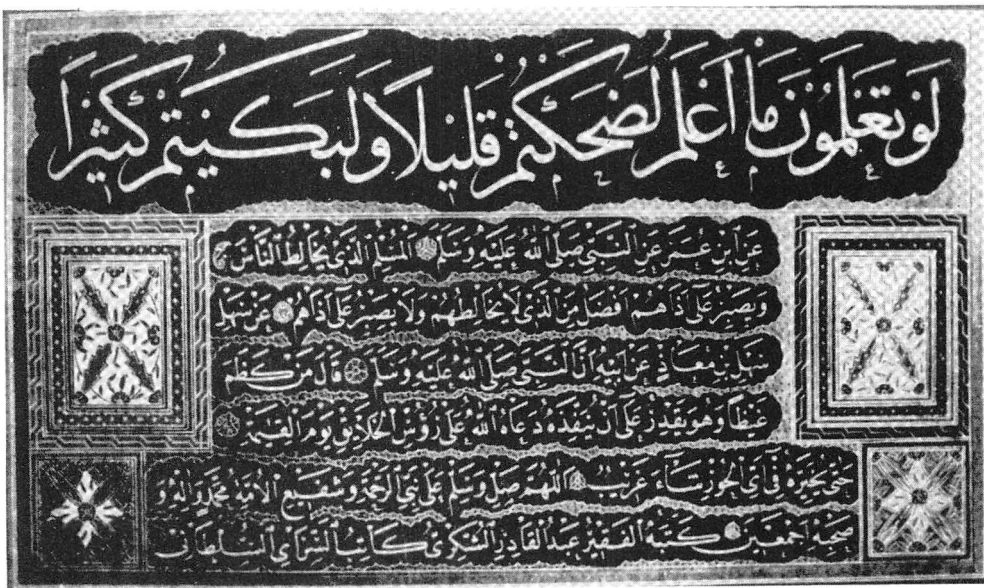 لَوْ تَعْلَمُونَ مَا اَعْلَمُ لَضَحِكْتُمْ قَلِيلاً وَلَبَكَيْتُمْ كَثِيرًا
عَنِ ابْنِ عُمَرَ عَنِ النَّبِيِّ صَلَّى اللهُ عَلَيْهِ وَسَلَّمَ الْمُسْلِمُ الَّذِي يُخَالِطُ النَّاسَ
وَيَصْبِرُ عَلَى اَذَاهُمْ اَفْضَلُ مِنَ الَّذِي لَا يُخَالِطُهُمْ وَلَا يَصْبِرُ عَلَى اَذَاهُمْ عَنْ سَهْلِ
سَهْلِ بْنِ مُعَاذٍ عَنْ اَبِيهِ اَنَّ النَّبِيَّ صَلَّى اللهُ عَلَيْهِ وَسَلَّمَ قَالَ مَنْ كَظَمَ
غَيْظًا وَهُوَ يَقْدِرُ عَلَى اَنْ يُنَفِّذَهُ دَعَاهُ اللهُ عَلَى رُؤُسِ الْخَلَايِقِ يَوْمَ الْقِيٰمَةِ
حَتَّى يُخَيِّرَهُ فِي اَيِّ الْحُورِ شَاءَ غَرِيبٌ اَللّٰهُمَّ صَلِّ وَسَلِّمْ عَلَى نَبِيِّ الرَّحْمَةِ وَشَفِيعِ الْاُمَّةِ مُحَمَّدٍ وَاٰلِهِ وَ
صَحْبِهِ اَجْمَعِينَ كَتَبَهُ الْفَقِيرُ عَبْدُ الْقَادِرِ الشُّكْرِي كَاتِبُ السَّرَايِ السُّلْطَانِي